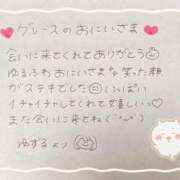 グレースのおにいさま
会いに来てくれてありがとう
ゆるふわおにいさまな笑った顔
がステキでした いっぱい
イチャイチャしてくれて嬉しいっ♡
また会いに来てね(˘˘)
ゆずるより